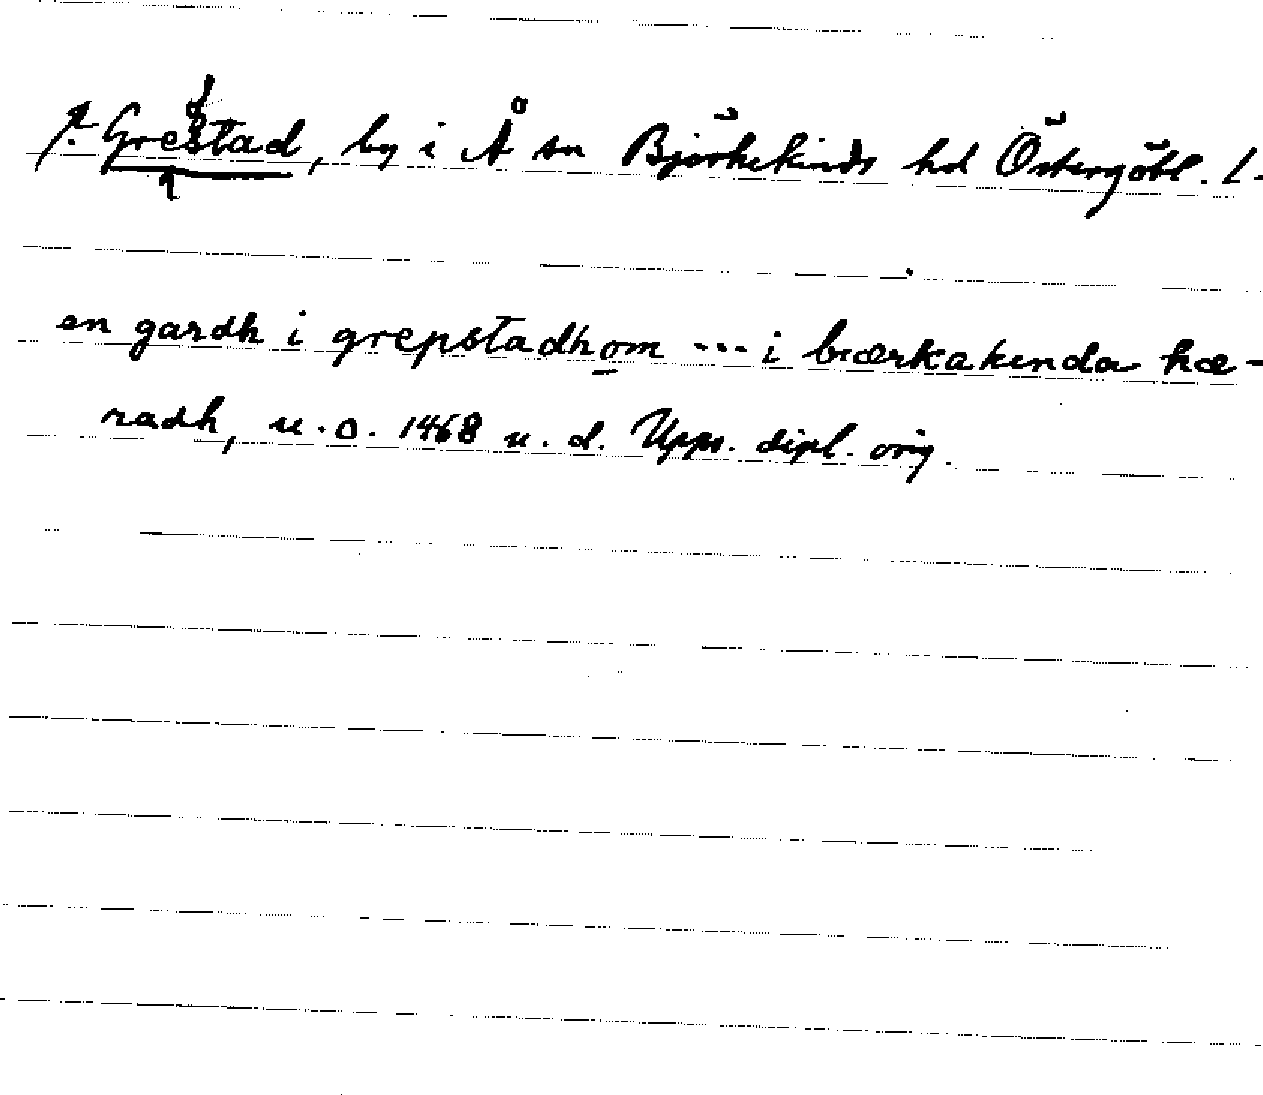 Grebstad, by i Å sn Björkekinds hd Östergötl. l.
en gardh i grepstadhom --- i biærkakinda hæ-
radh, u. o. 1468 u. d. Upps. dipl. orig.